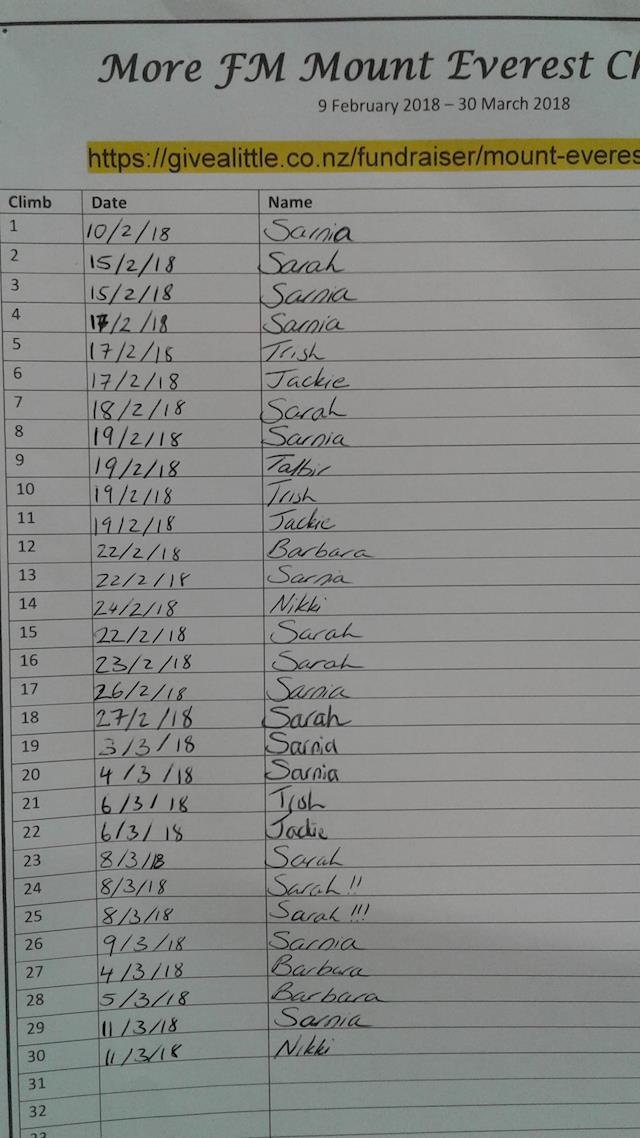 More FM Mount Everest Ch
9 February 2018 – 30 March 2018
https://givealittle.co.nz/fundraiser/mount-everes
Climb Date Name
1 10/2/18 Sarnia
2 15/2/18 Sarah
3 15/2/18 Sarnia
4 17/2/18 Sarnia
5 17/2/18 Trish
6 17/2/18 Jackie
7 18/2/18 Sarah
8 19/2/18 Sarnia
9 19/2/18
10 19/2/18 Trish
11 19/2/18 Jackie
12 22/2/18 Barbara
13 22/2/18 Sarnia
14 24/2/18 Nikki
15 22/2/18 Sarah
16 23/2/18 Sarah
17 26/2/18 Sarnia
18 27/2/18 Sarah
19 3/3/18 Sarnia
20 4/3/18 Sarnia
21 6/3/18 Trish
22 6/3/18 Jackie
23 8/3/18 Sarah
24 8/3/18 Sarah!!
25 8/3/18 Sarah!!!
26 9/3/18 Sarnia
27 4/3/18 Barbara
28 5/3/18 Barbara
29 11/3/18 Sarnia
30 11/3/18 Nikki
31
32